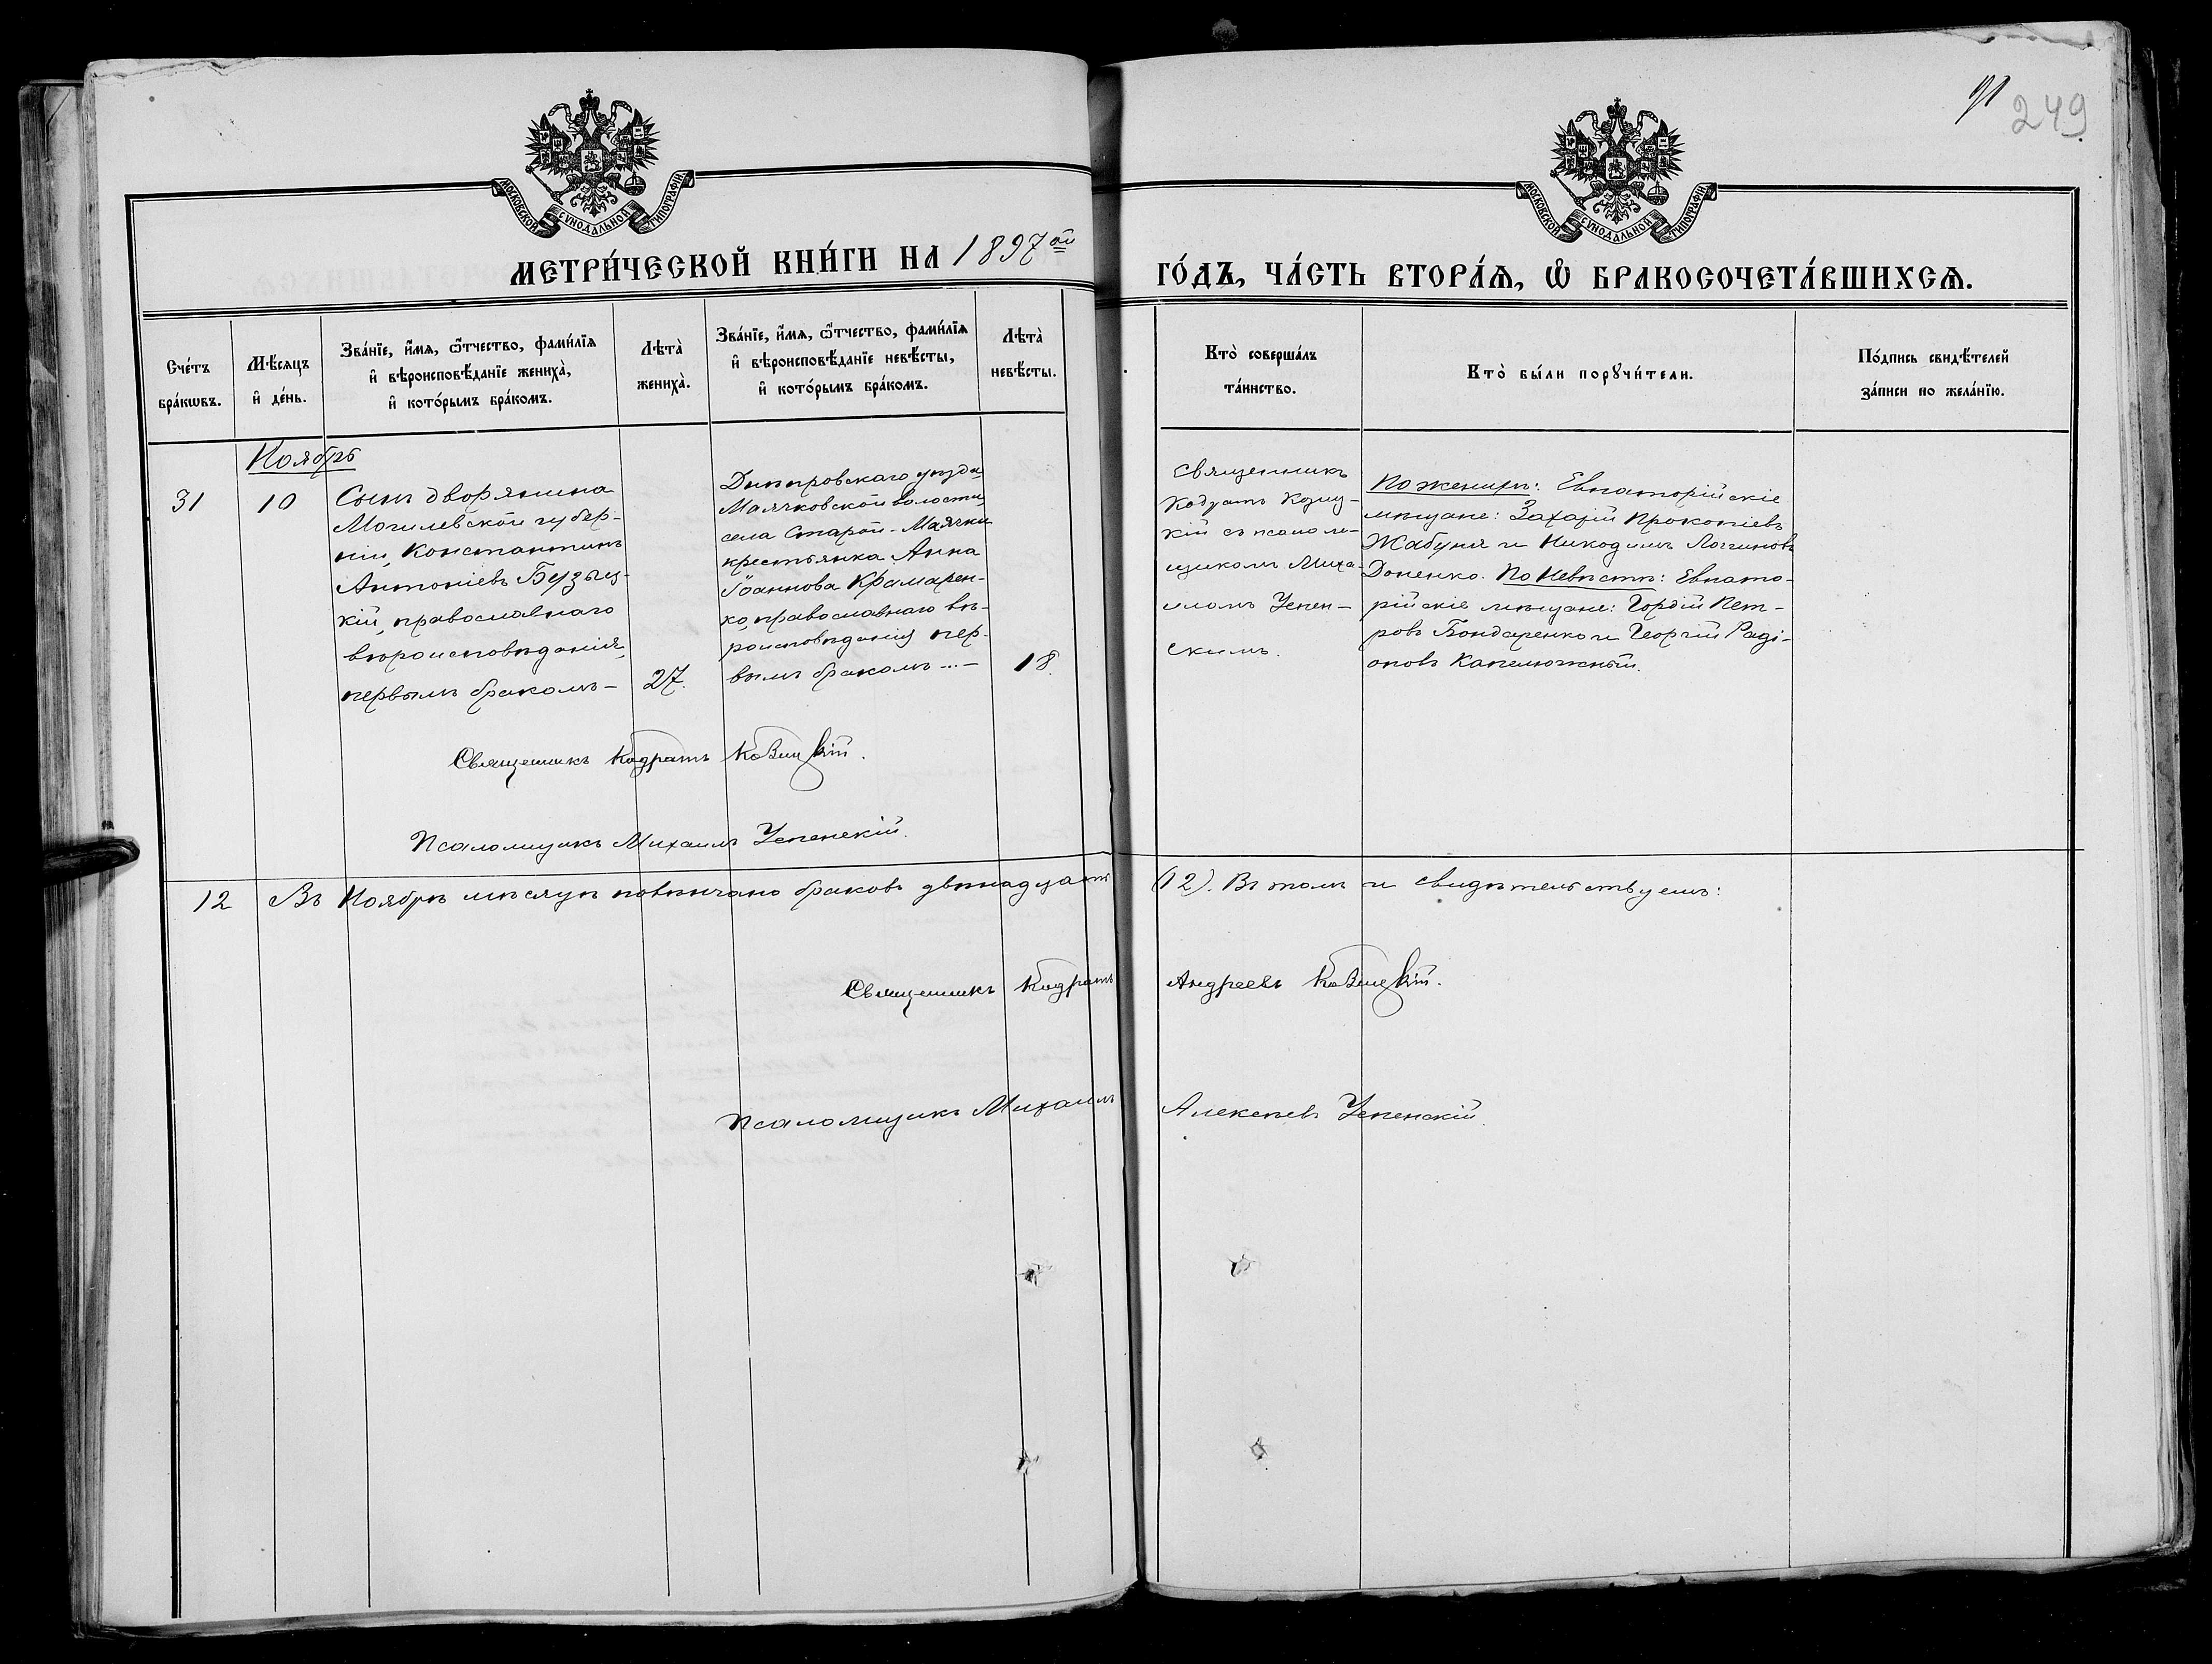 91
249
МОСКОВСКОЙ СѴНОДАЛЬНОЙ ТИПОГРАФІИ
МОСКОВСКОЙ СѴНОДАЛЬНОЙ ТИПОГРАФІИ
МЕТРИ́ЧЕСКОЙ КНИ́ГИ НА 1897 ой
ГО́ДЪ, ЧА́СТЬ ВТОРА́Ѧ, Ѽ БРАКОСОЧЕТА́ВШИХСѦ.
Сче́тъ
бра́кѡвъ.
Мѣ́сяцъ
и҆ де́нь.
Зва́нїе, и҆́мя, ѻ҆́тчество, фами́лїя
и҆ вѣроисповѣ́данїе жениха̀,
и҆ кото́рымъ бра́комъ.
Лѣта̀
жениха̀.
Зва́нїе, и҆́мя, ѻ҆́тчество, фами́лїя
и҆ вѣроисповѣ́данїе невѣ́сты,
и҆ кото́рымъ бра́комъ.
Лѣта̀
невѣ́сты.
Кто̀ соверша́лъ
та́инство.
Кто̀ бы́ли порꙋчи́тели.
По́дпись свидѣ́телей
за́писи по жела́нїю.
Ноябрь
31
10
Сынъ дворянина
Могилевской губер-
ніи, Константинъ
Антоніевъ Бузыц-
кій, православнаго
вѣроисповѣданія,
первымъ бракомъ—
27.
Днѣпровскаго уѣзда
Маячковской волости,
села Старой-Маячки
крестьянка Анна
Іоаннова Крамарен-
ко, православнаго вѣ-
роисповѣданія пер-
вымъ бракомъ ...—
18.
Священникъ
Кодратъ Козиц-
кій съ псалом-
щикомъ Миха-
иломъ Успен-
скимъ.
По женихѣ: Евпаторійскіе
мѣщане: Захарій Прокопіевъ
Жабуня и Никодимъ Логиновъ
Доненко. По невѣстѣ: Евпато-
рійскіе мѣщане: Гордій Пет-
ровъ Бондаренко и Георгій Раді-
оновъ Капелюжный.
Священникъ Кодратъ Козицкій.
Псаломщикъ Михаилъ Успенскій.
12 Въ Ноябрѣ мѣсяцѣ повѣнчано браковъ двѣнадцать (12). Въ томъ и свидѣтельствуемъ:
Священникъ Кодратъ Андреевъ Козицкій.
Псаломщикъ Михаилъ Алексѣевъ Успенскій.